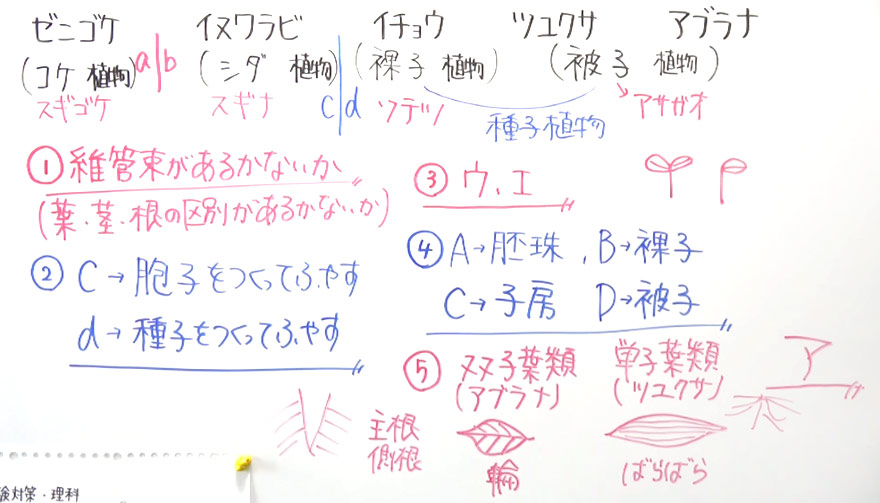 ゼニゴケ イヌワラビ イチョウ ツユクサ アブラナ
(コケ植物) a|b (シダ植物) (裸子植物) (被子植物)
スギゴケ スギナ c|d ソテツ 種子植物 アサガオ
① 維管束があるかないか
(葉・茎・根の区別があるかないか)
② C→胞子をつくってふやす
d→種子をつくってふやす
③ ウ、エ
④ A→胚珠、B→裸子
C→子房 D→被子
⑤ 双子葉類 単子葉類 ア
(アブラナ) (ツユクサ)
主根
側根
輪 ばらばら
験対策・理科